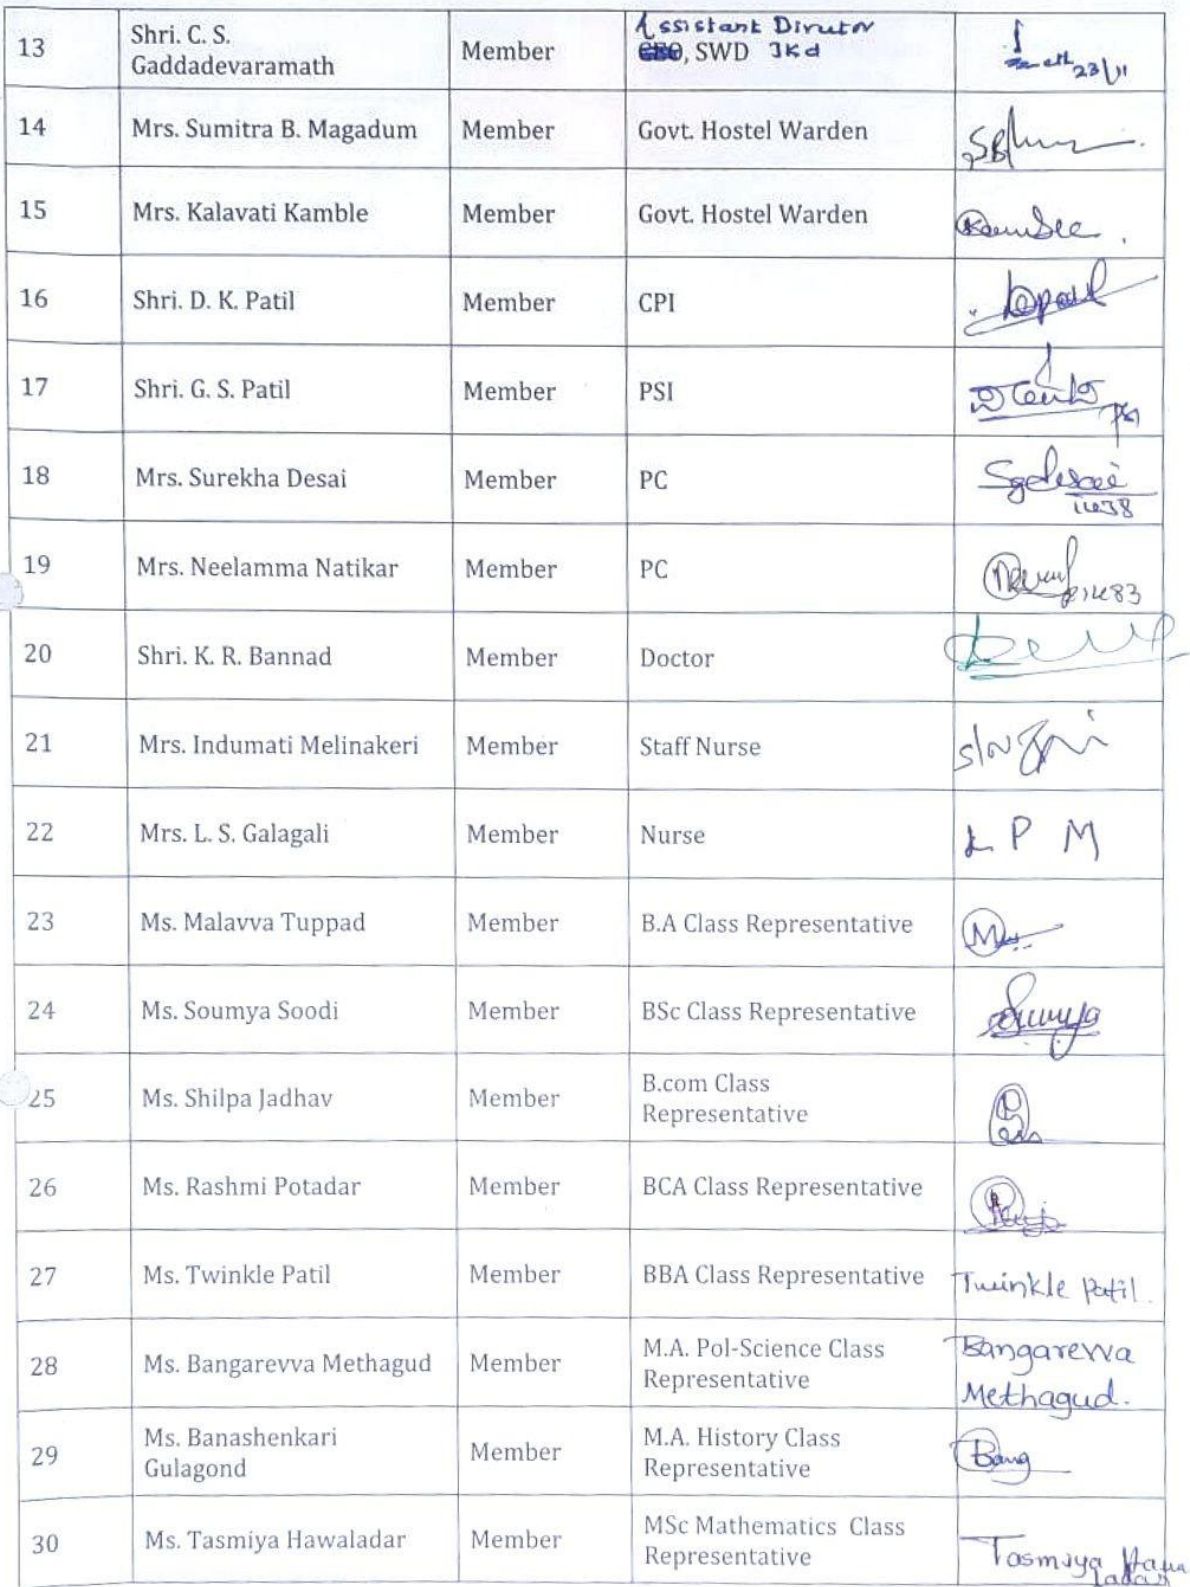 13 Shri. C. S. Gaddadevaramath Member Assistant Dirutor , SWD JKd 23/11
14 Mrs. Sumitra B. Magadum Member Govt. Hostel Warden
15 Mrs. Kalavati Kamble Member Govt. Hostel Warden
16 Shri. D. K. Patil Member CPI
17 Shri. G. S. Patil Member PSI
18 Mrs. Surekha Desai Member PC Sgdesai
19 Mrs. Neelamma Natikar Member PC
20 Shri. K. R. Bannad Member Doctor
21 Mrs. Indumati Melinakeri Member Staff Nurse
22 Mrs. L. S. Galagali Member Nurse L P M
23 Ms. Malavva Tuppad Member B.A Class Representative
24 Ms. Soumya Soodi Member BSc Class Representative
25 Ms. Shilpa Jadhav Member B.com Class Representative
26 Ms. Rashmi Potadar Member BCA Class Representative
27 Ms. Twinkle Patil Member BBA Class Representative Twinkle Patil.
28 Ms. Bangarevva Methagud Member M.A. Pol-Science Class Representative Bangarevva Methagud.
29 Ms. Banashenkari Gulagond Member M.A. History Class Representative Bang
30 Ms. Tasmiya Hawaladar Member MSc Mathematics Class Representative Tasmiya